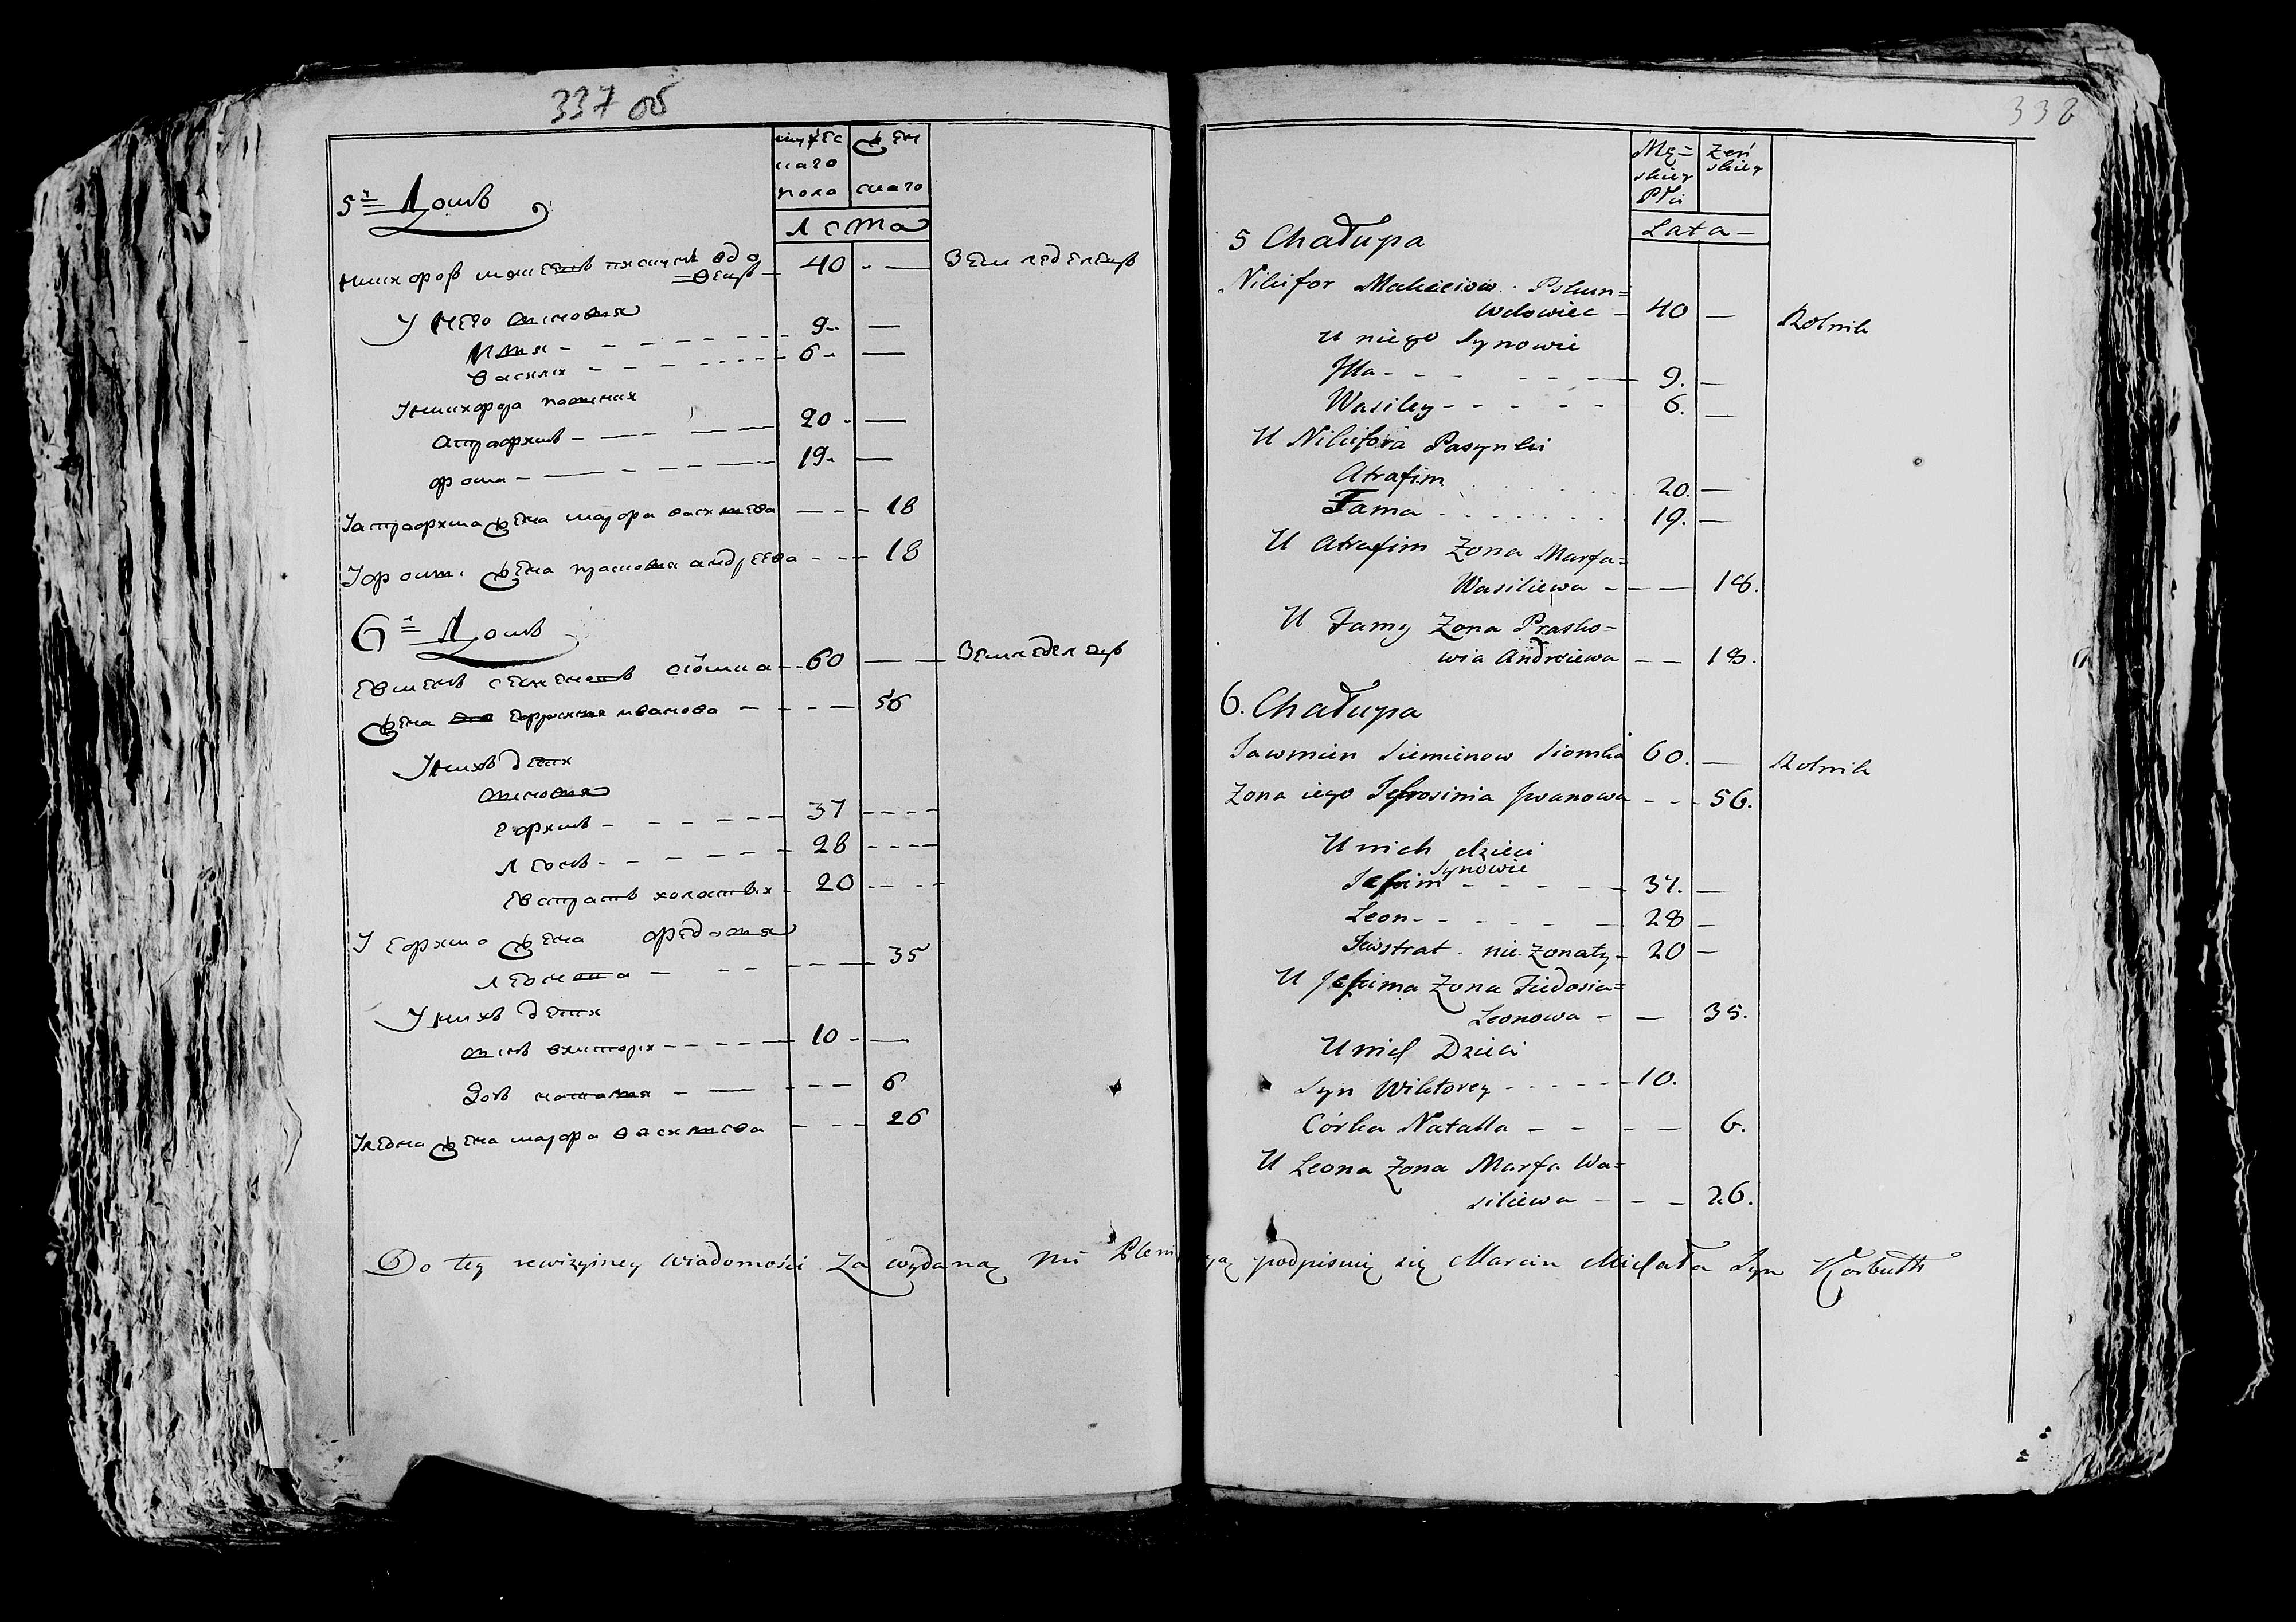 337 об
мужес
каго
пола
жен
скаго
лета
5й Домъ
никифоръ макеевъ пхсунъ вдо
=вецъ - 40 - — земледелецъ
У него сыновья
Илья - 9 —
василий - 6 —
У никифора пасынки
Атрафимъ - 20 —
фома - 19 —
У атрафима жена марфа васильева — 18
У фомы жена прасковья андреева - 18
6й Домъ
Евменъ семеновъ сёмка - 60 — земледелецъ
жена его ефросинья иванова - 56
У нихъ дети
сыновья
Ефимъ - 37
Леонъ - 28
Евстратъ холостый - 20
У Ефима жена федосья
леонова - 35
У нихъ дети
сынъ викторий - 10 —
дочь наталья - 6
У леона жена марфа васильева - 26
338
Mę=
skiey
Płci
Żeń
skiey
Lata -
5 Chałupa
Nikifor Makieiow Pskun=
Wdowiec - 40 — Rolnik
U niego Synowie
Jlla - 9. —
Wasiley - 6. —
U Nikifora Pasynki
Atrafim 20. —
Fama 19. —
U Atrafim Zona Marfa=
Wasiliewa - — 18.
U Famy Zona Prasko=
wia Andreiewa — 18.
6. Chałupa
Jawmien Siemienow Siomka 60. — Rolnik
Zona iego Jefrosinia Jwanowa - - 56.
U nich dzieci
Synowie
Jefim - 37. —
Leon - 28 —
Jewstrat nie Zonaty - 20 —
U Jefima Zona Fiedosia=
Leonowa - — 35.
U nich Dzieci
Syn Wiktorey - 10.
Córka Natalla - — 6.
U Leona Zona Marfa Wa=
siliewa - — 26.
Do tey rewizyiney wiadomości za wydaną mi Pleni yą podpisuię się Marcin Michała Syn Korbutt